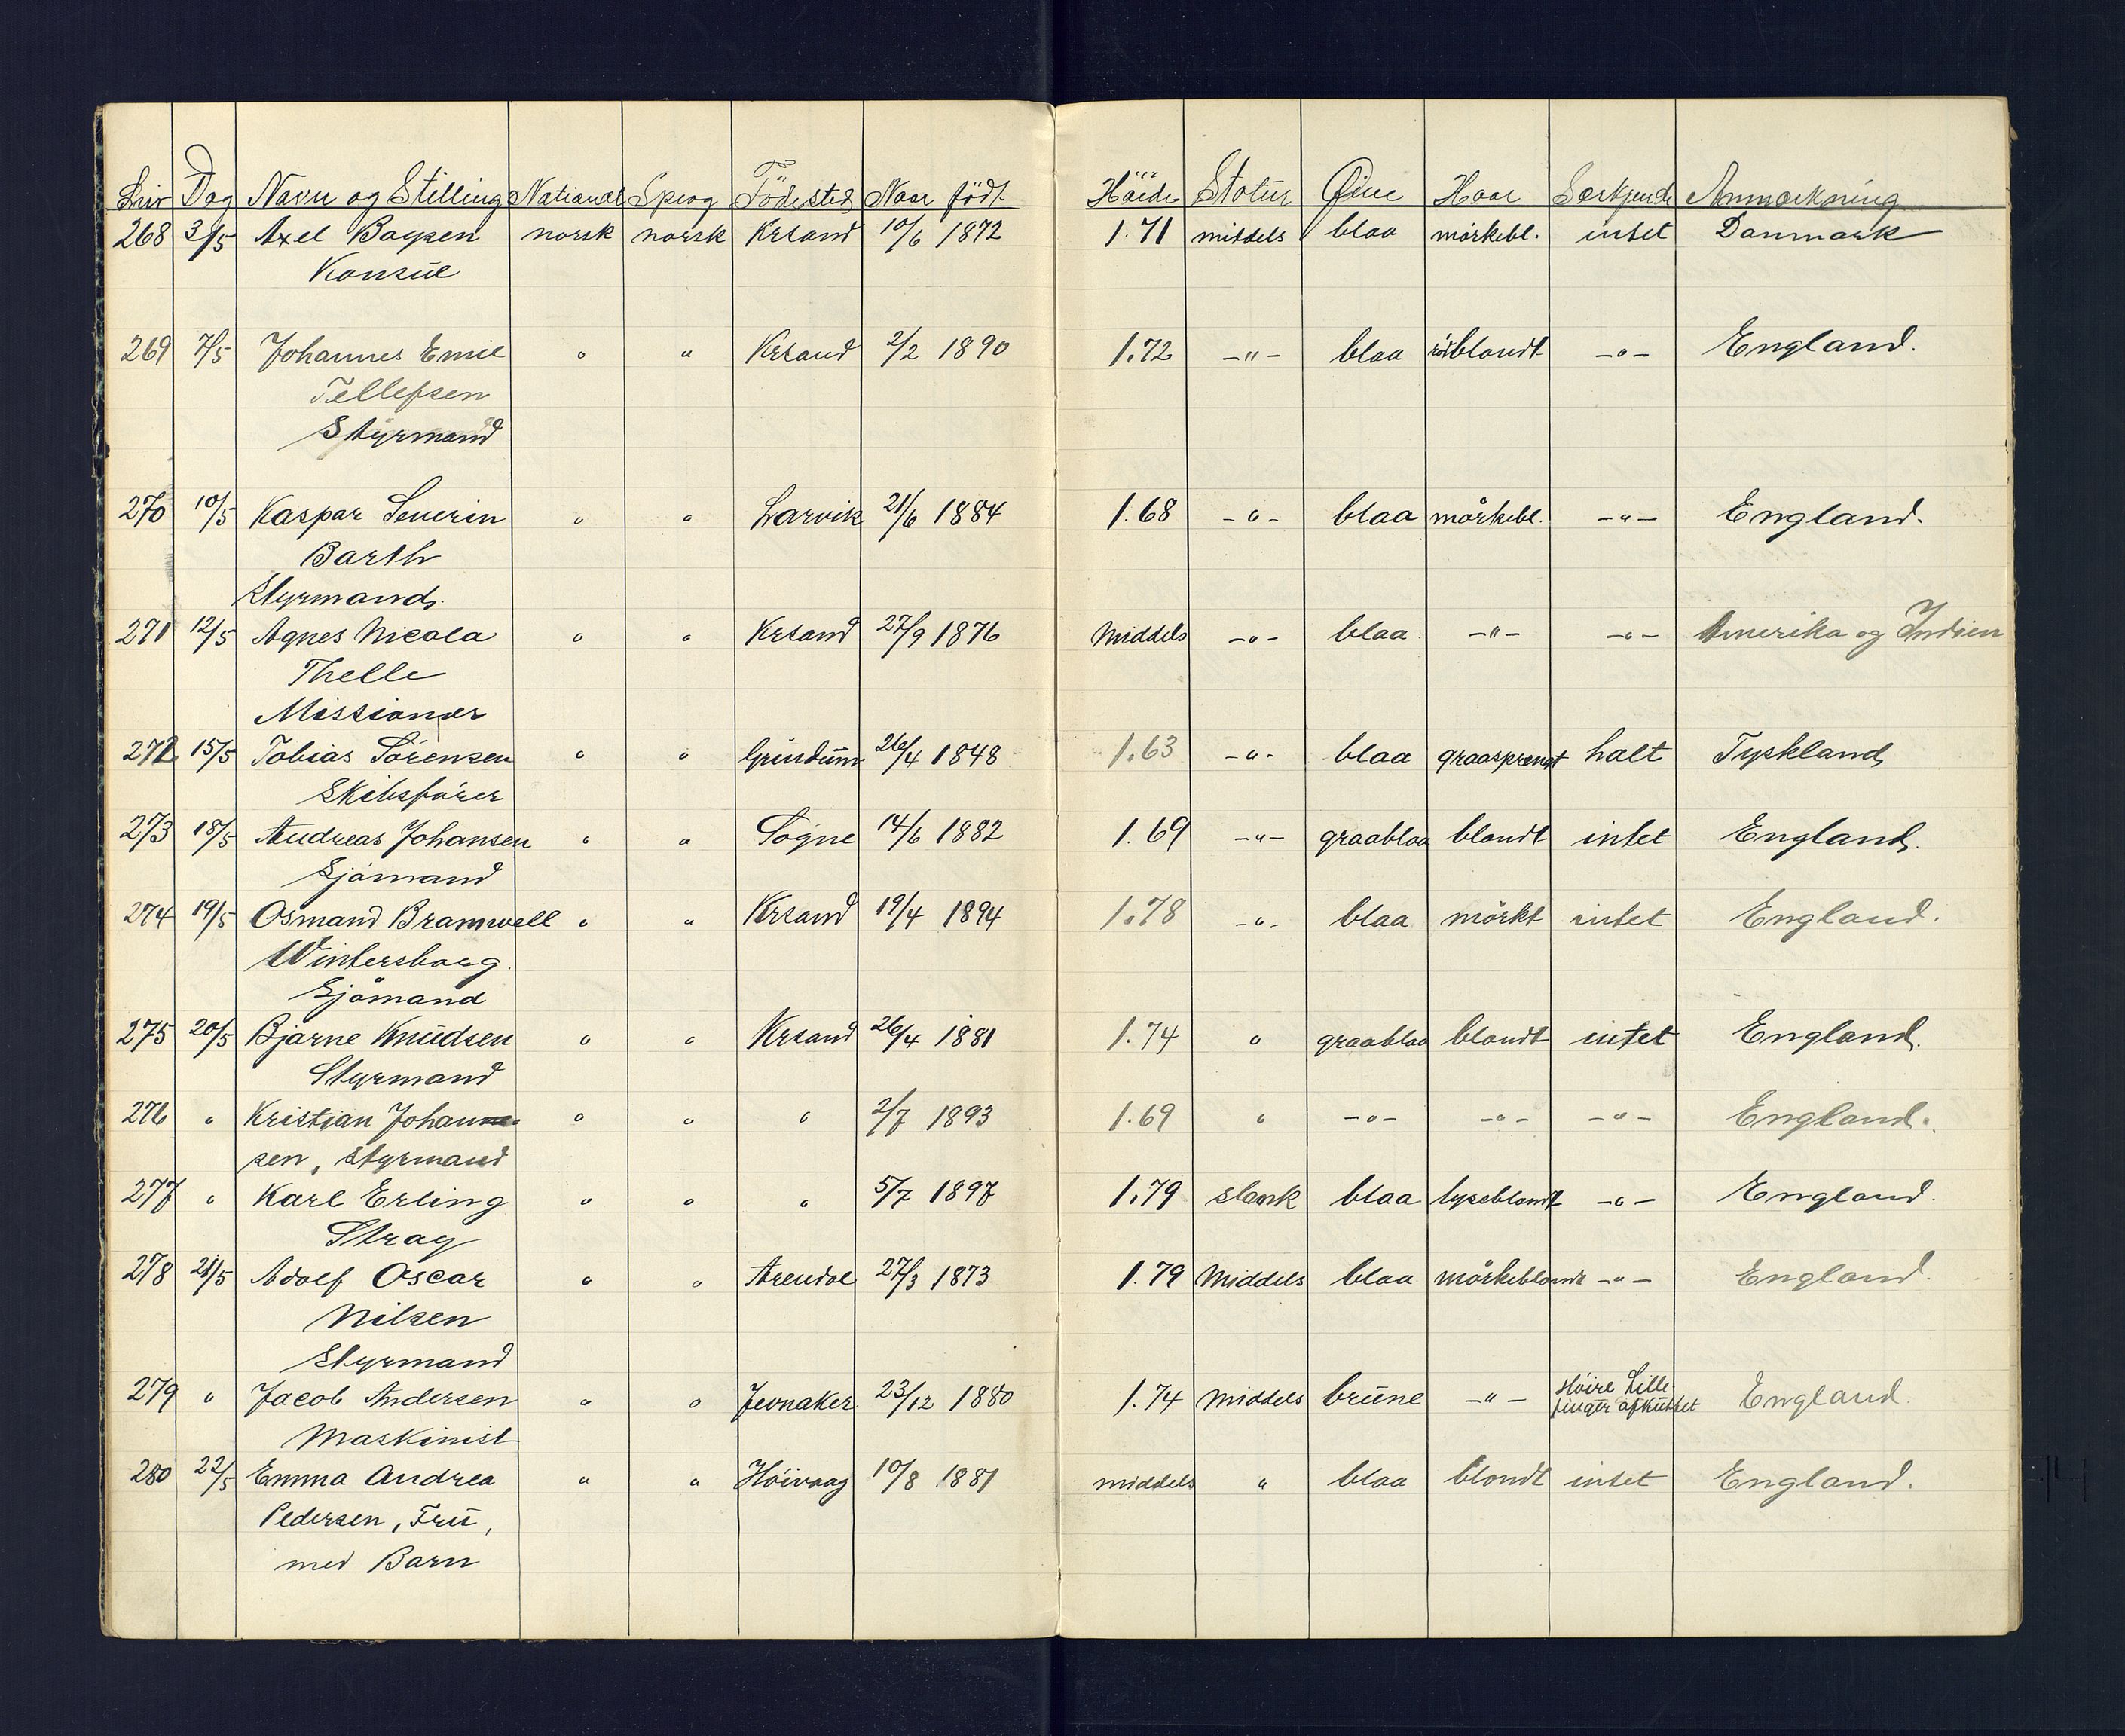 Dag Navn og Stilling National Sprog Födested Naar födt. Höide Statur Øine Haar Særkjende Anmærkning
268 3/5 Axel norsk norsk Krsand 10/6 1872 1.71 middels blaa mörkebl. intet Danmark
Konsul
269 7/5 Johannes Emil " " Krsand 2/2 1890 1.72 -"- blaa rödblondt -"- England.
Tellefsen
Styrmand
270 10/5 Kaspar Severin " " Larvik 21/6 1884 1.68 -"- blaa mörkebl. -"- England.
Barth
Styrmand
271 12/5 Agnes Nicola " " Krsand 27/9 1876 Middels -"- blaa -"- -"- Amerika og Indien
Thelle
Missionær
272 15/5 Tobias Sörensen " " Grindum 26/4 1848 1.63 -"- blaa graasprengt halt Tyskland
Skibsförer
273 18/5 Andreas Johansen " " Sögne 14/6 1882 1.69 -"- graablaa blondt intet England.
Sjömand
274 19/5 Osmand Bramwell " " Krsand 19/4 1894 1.78 -"- blaa mörkt intet England.
Wintersborg.
Sjömand
275 20/5 Bjarne Knudsen " " Krsand 26/4 1881 1.74 " graablaa blondt intet England.
Styrmand
276 " Kristian Johan " " " 2/7 1893 1.69 " -"- -"- -"- England.
sen, Styrmand
277 " Karl Erling " " " 5/7 1897 1.79 slank blaa lyseblondt -"- England.
Stray
278 21/5 Adolf Oscar " " Arendal 27/3 1873 1.79 Middels blaa mörkeblondt -"- England.
Nilsen
Styrmand
279 " Jacob Andersen " " Jevnaker 23/12 1880 1.74 Middels brune -"- Höire Lille England.
Maskinist finger afkuttet
280 22/5 Emma Andrea " " Höivaag 10/8 1881 middels " blaa blondt intet England.
Pedersen, Fru,
med Barn